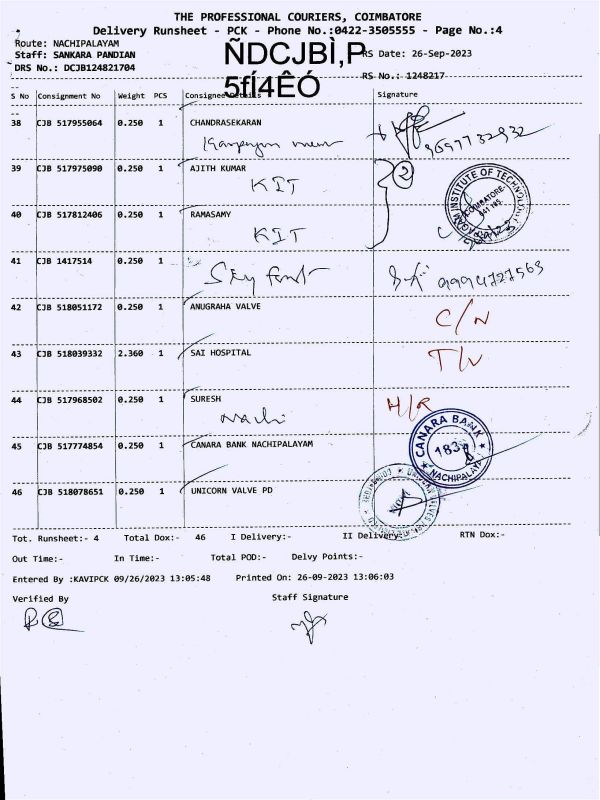 THE PROFESSIONAL COURIERS, COIMBATORE
Delivery Runsheet - PCK - Phone No.:0422-3505555 - Page No.:4
Route: NACHIPALAYAM
Staff: SANKARA PANDIAN
DRS No.: DCJB124821704
ÑDCJBÌ,P
5fÍ4ÊÓ
RS Date: 26-Sep-2023
RS No.: 1248217
S No Consignment No Weight PCS Consignee Details Signature
38 CJB 517955064 0.250 1 CHANDRASEKARAN
9697732932
39 CJB 517975090 0.250 1 AJITH KUMAR
KIT 2
40 CJB 517812406 0.250 1 RAMASAMY
KIT
INSTITUTE OF TECHNOLOGY
COIMBATORE-
41 CJB 1417514 0.250 1
9994727563
42 CJB 518051172 0.250 1 ANUGRAHA VALVE
C/N
43 CJB 518039332 2.360 1 SAI HOSPITAL
44 CJB 517968502 0.250 1 SURESH
Nachi H/R
45 CJB 517774854 0.250 1 CANARA BANK NACHIPALAYAM
CANARA BANK
NACHIPALAYAM
46 CJB 518078651 0.250 1 UNICORN VALVE PD
Tot. Runsheet:- 4 Total Dox:- 46 I Delivery:- II Delivery:- RTN Dox:-
Out Time:- In Time:- Total POD:- Delvy Points:-
Entered By :KAVIPCK 09/26/2023 13:05:48 Printed On: 26-09-2023 13:06:03
Verified By Staff Signature